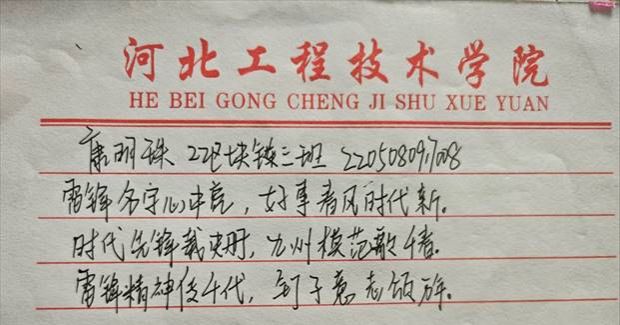 河北工程技术学院
HE BEI GONG CHENG JI SHU XUE YUAN
康明珠 22区块链三班 22050809,1008
雷锋名字心中亮，好事春风时代新。
时代先锋载史册，九州模范歌千春。
雷锋精神传千代，钉子意志颂万年。